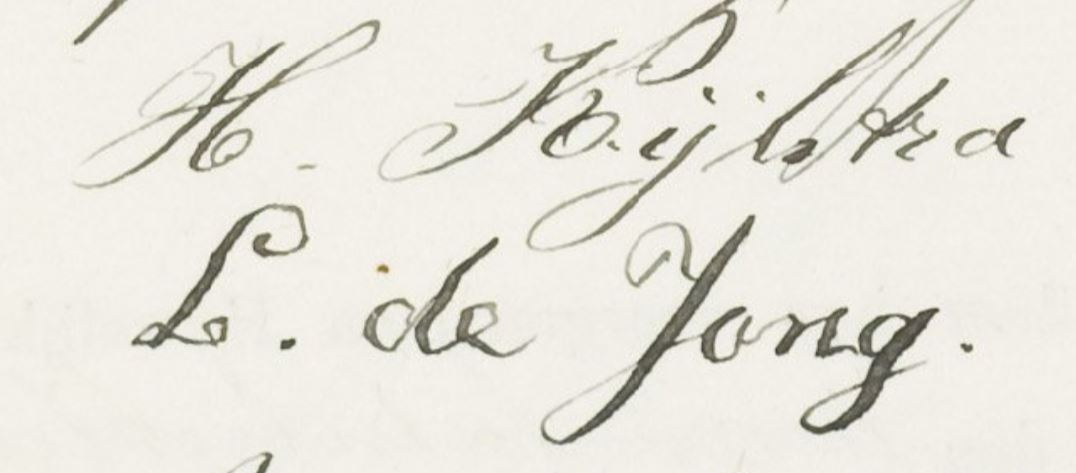 H. Kijlstra
L. de Jong.